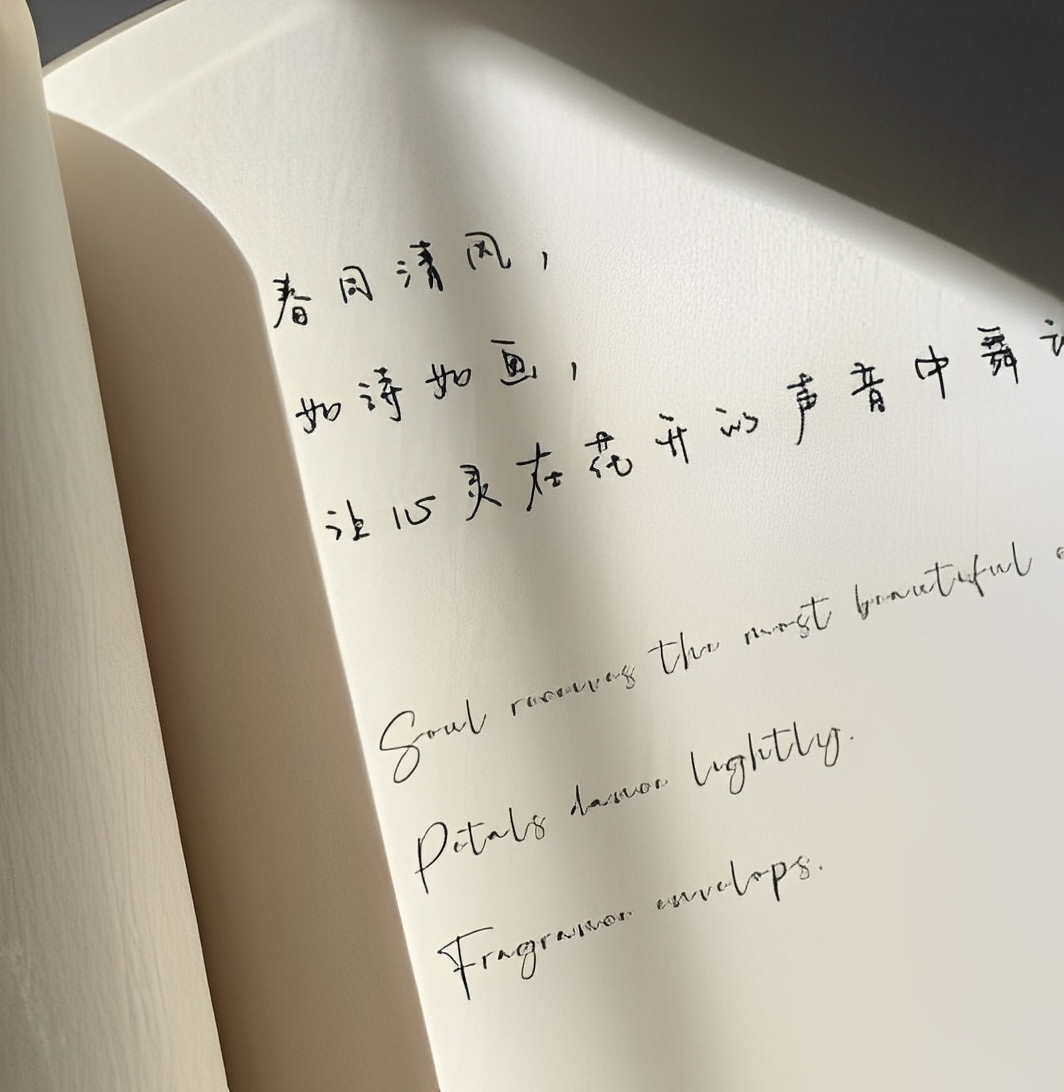 春日清风，
如诗如画，
让心灵在花开的声音中舞
Soul receives the most beautiful
Petals dance lightly.
Fragrance envelops.